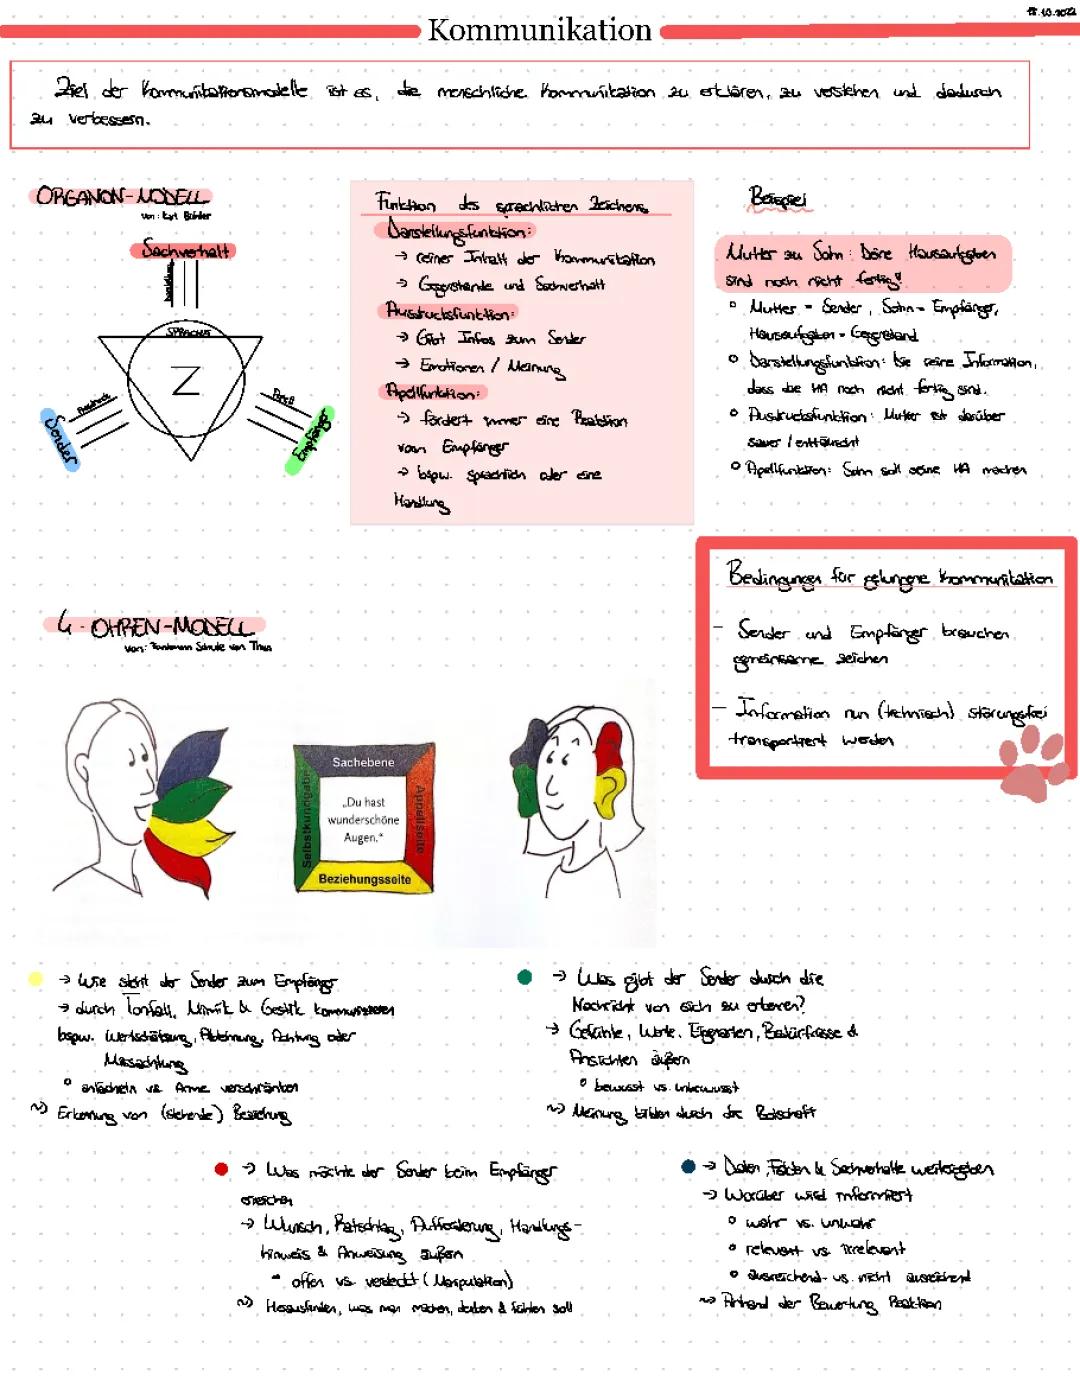 Kommunikation
Ziel der Kommunikationsmodelle ist es, die menschliche Kommunikation zu erklären, zu verstehen und dadurch
zu verbessern.
ORGANON-MODELL
von: Karl Bühler
Sachverhalt
SPRACHE
Z
Ausdruck
Appell
Sender
Empfänger
Funktion des sprachlichen Zeichens
Darstellungsfunktion:
→ reiner Inhalt der Kommunikation
→ Gegenstände und Sachverhalt
Ausdrucksfunktion:
→ Gibt Infos zum Sender
→ Emotionen / Meinung
Apellfunktion:
→ fordert immer eine Reaktion
vom Empfänger
→ bspw. sprachlich oder eine
Handlung
Beispiel
Mutter zu Sohn: Deine Hausaufgaben
sind noch nicht fertig"
° Mutter = Sender, Sohn = Empfänger,
Hausaufgaben = Gegenstand
° Darstellungsfunktion: Die reine Information,
dass die HA noch nicht fertig sind.
° Ausdrucksfunktion: Mutter ist darüber
sauer / enttäuscht
° Apellfunktion: Sohn soll seine HA machen
Bedingungen für gelungene Kommunikation
- Sender und Empfänger brauchen
gemeinsame Zeichen
- Information nun (technisch) störungsfrei
transportiert werden
4-OHREN-MODELL
von: Schulz von Thun
Sachebene
Selbstkundgabe
„Du hast
wunderschöne
Augen."
Appellseite
Beziehungsseite
→ Wie steht der Sender zum Empfänger
→ durch Tonfall, Mimik & Gestik kommunizieren
bspw. Wertschätzung, Ablehnung, Achtung oder
Missachtung
° anlächeln vs. Arme verschränken
~> Erkennung von (stehende) Beziehung
→ Was gibt der Sender durch die
Nachricht von sich zu erkennen?
→ Gefühle, Werte, Eigenarten, Bedürfnisse &
Ansichten äußern
° bewusst vs. unbewusst
~> Meinung bilden durch die Botschaft
→ Was möchte der Sender beim Empfänger
erreichen
→ Wunsch, Ratschlag, Aufforderung, Handlungs-
hinweis & Anweisung äußern
- offen vs. verdeckt (Manipulation)
~> Herausfinden, was man machen, denken & fühlen soll
→ Daten, Fakten & Sachverhalte weitergeben
→ Worüber wird informiert
° wahr vs. unwahr
° relevant vs. irrelevant
° ausreichend vs. nicht ausreichend
~> Anhand der Bewertung Reaktion